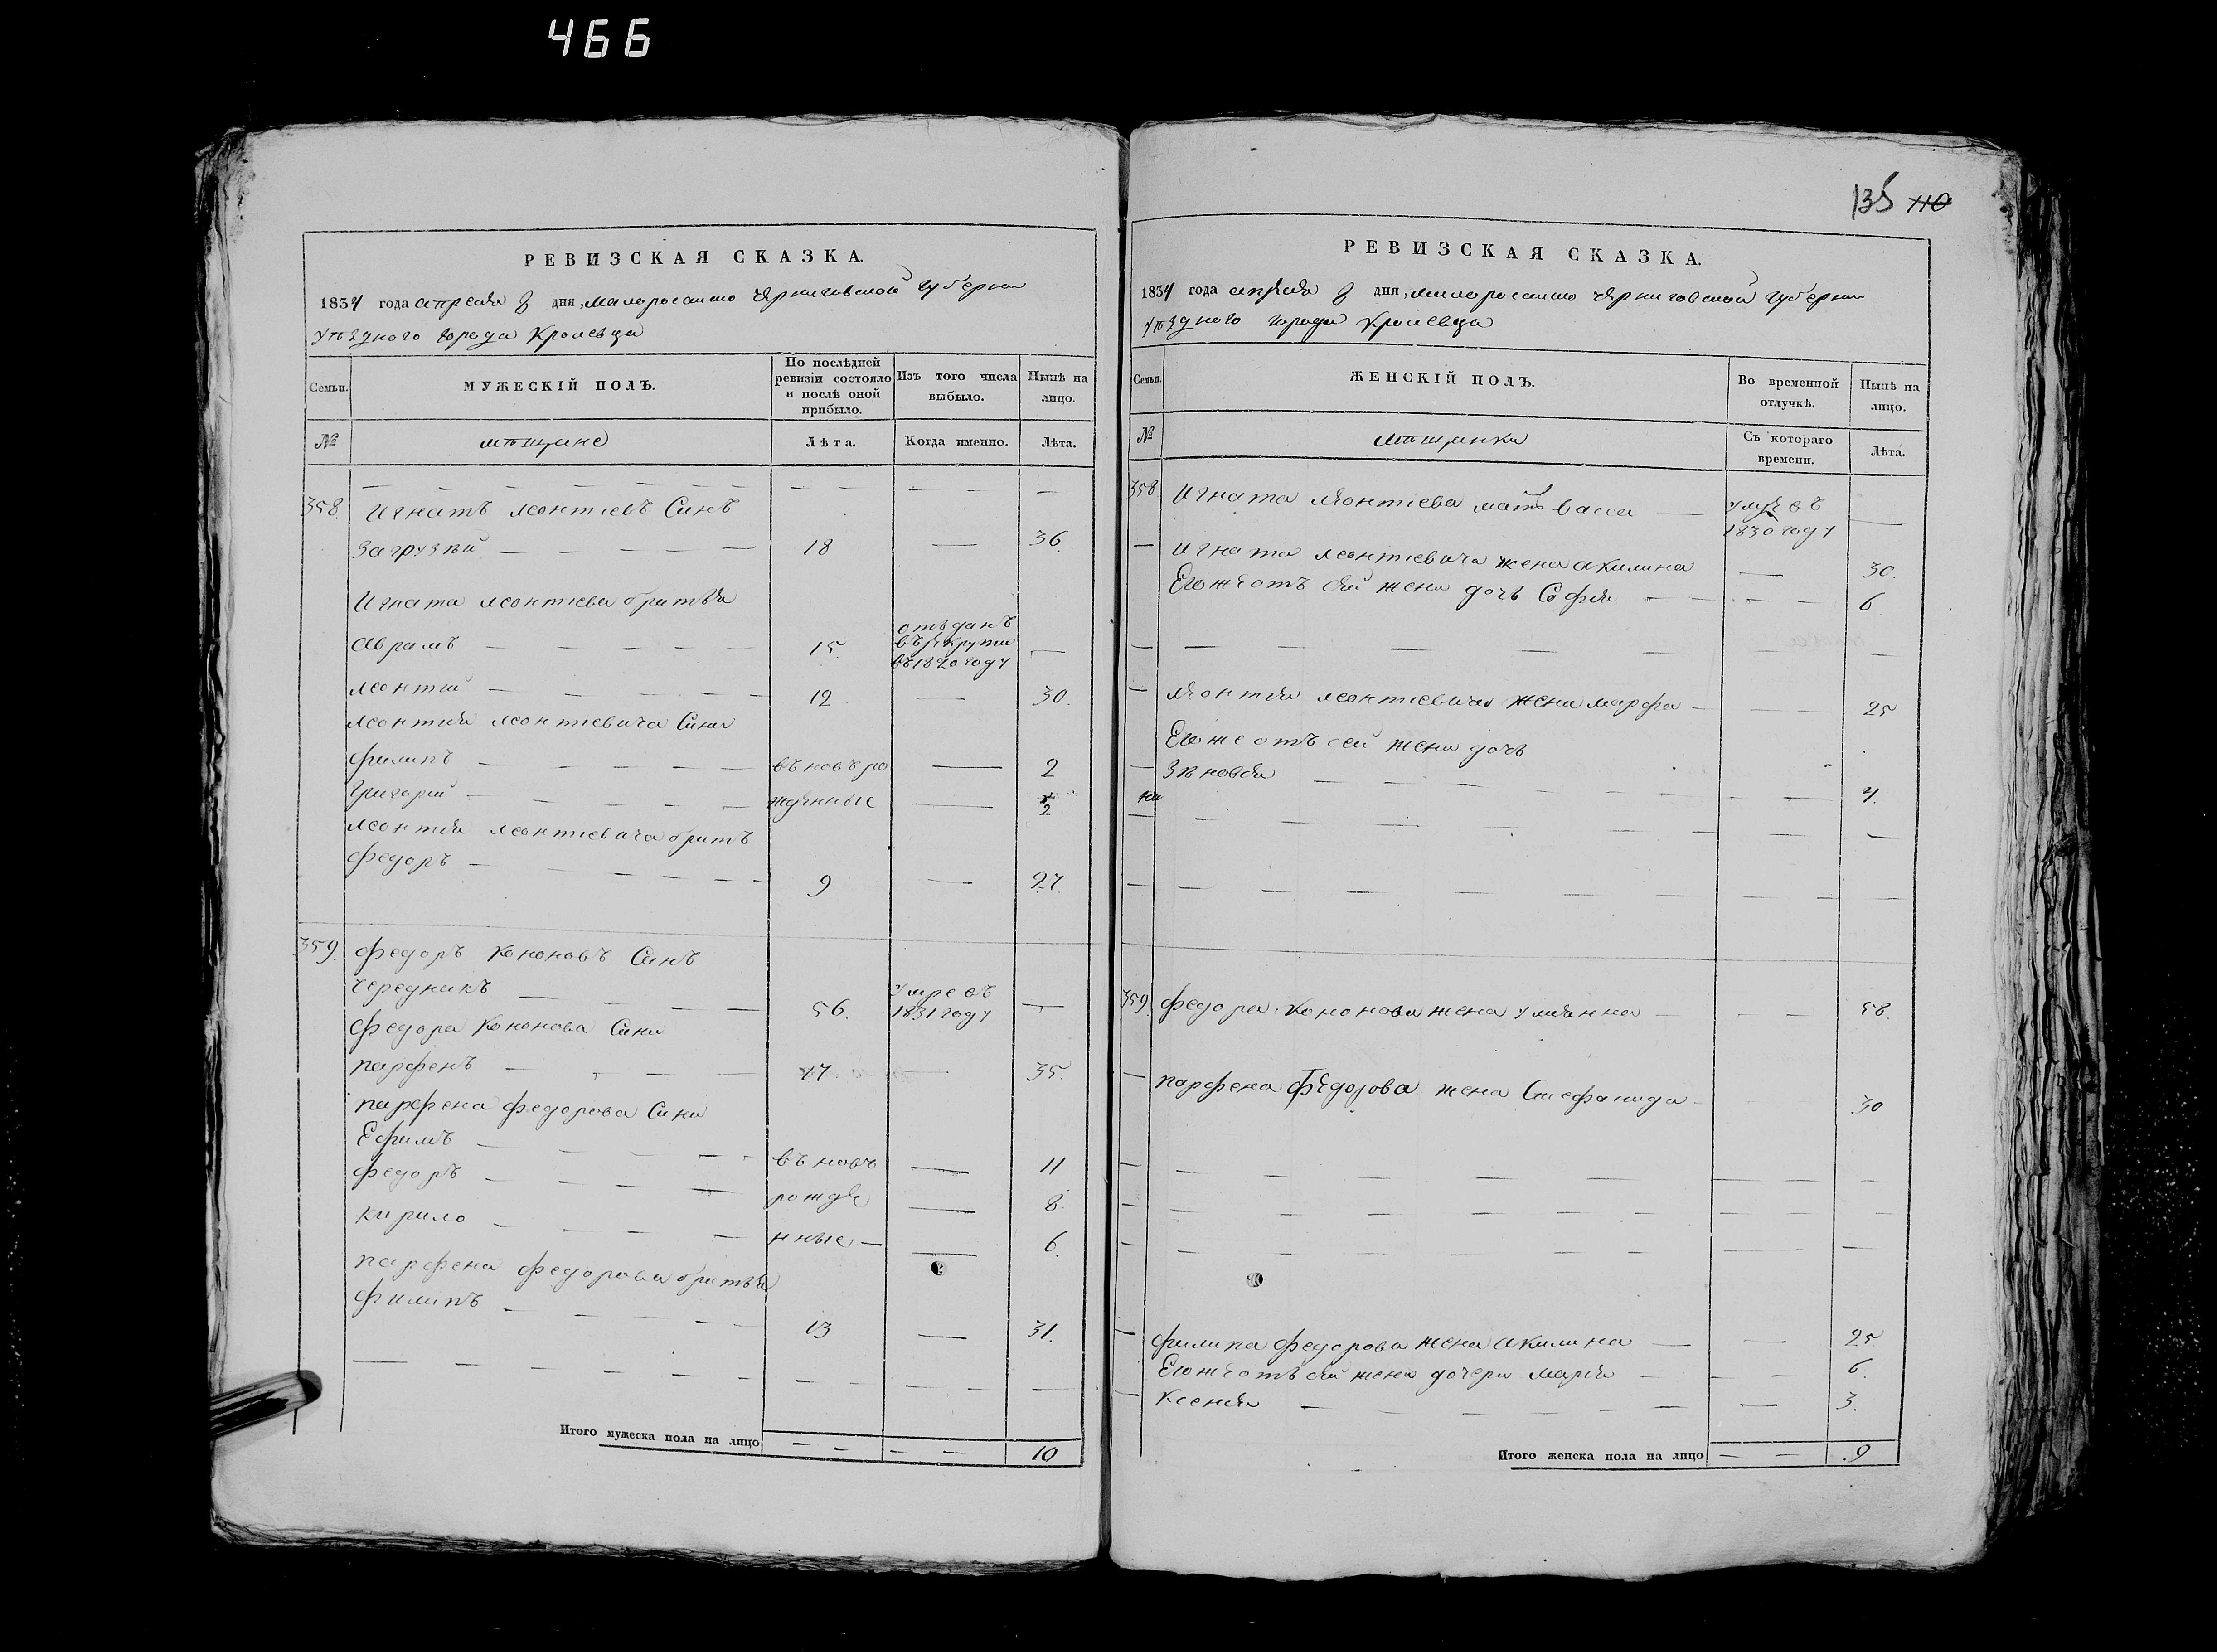 466
РЕВИЗСКАЯ СКАЗКА.
1834 года апреля дня, малоросийско Черниговской губернии
уѣздного города Кролевца
Семьи.
МУЖЕСКІЙ ПОЛЪ.
По послѣдней ревизіи состояло и послѣ оной прибыло.
Изъ того числа выбыло.
Нынѣ на лицо.
№
мѣщане
Лѣта.
Когда именно.
Лѣта.
358. Игнатъ Леонтіевъ Синъ
18 — 36.
Игната Леонтіева братья
отъданъ
Аврамъ 15. въ рекрути —
въ 1820 году
Леонтий 12 — 30.
Леонтия Леонтіевича Сини
Филипъ въновъ ро — 2
Григорий жденные — ½
Леонтия Леонтіевича братъ
Федоръ 9 — 27.
359. Федоръ Кононовъ Синъ
Чередникъ 56. умре въ —
1831 году
Федора Кононова Сини
Парфенъ 17. — 35.
Парфена Федорова Сини
Ефимъ въ новъ — 11
Федоръ рожде — 8
Кирило нные — 6.
Парфена Федорова братья
Филипъ 13 — 31.
Итого мужеска пола на лицо 10
135 110
РЕВИЗСКАЯ СКАЗКА.
1834 года апреля дня, малоросийско Черниговской губернии
уѣздного города Кролевца
Семьи.
ЖЕНСКІЙ ПОЛЪ.
Во временной отлучкѣ.
Нынѣ на лицо.
№
мѣщанки
Съ котораго времени.
Лѣта.
358 Игната Леонтиева мать Васса — умре въ —
1830 году
Игната Леонтіевича жена Акилина — 30.
Его же отъ сей жени дочь София 6
Леонтия Леонтиевича жена Марфа — 25
Его же отъ сей жени дочь
Зѣновия 4.
359. Федора Кононова жена Улиянна 58.
Парфена Федорова жена Стефанида 30
Филипа Федорова жена Акилина — 25
Его же отъ сей жени дочери Мария — 6.
Ксения — 3.
Итого женска пола на лицо — 9